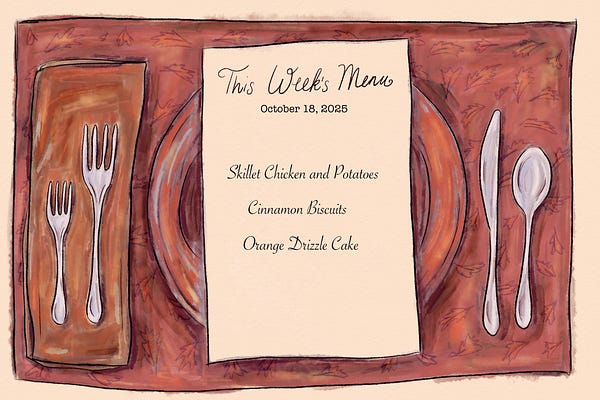 This Week's Menu
October 18, 2025
Skillet Chicken and Potatoes
Cinnamon Biscuits
Orange Drizzle Cake